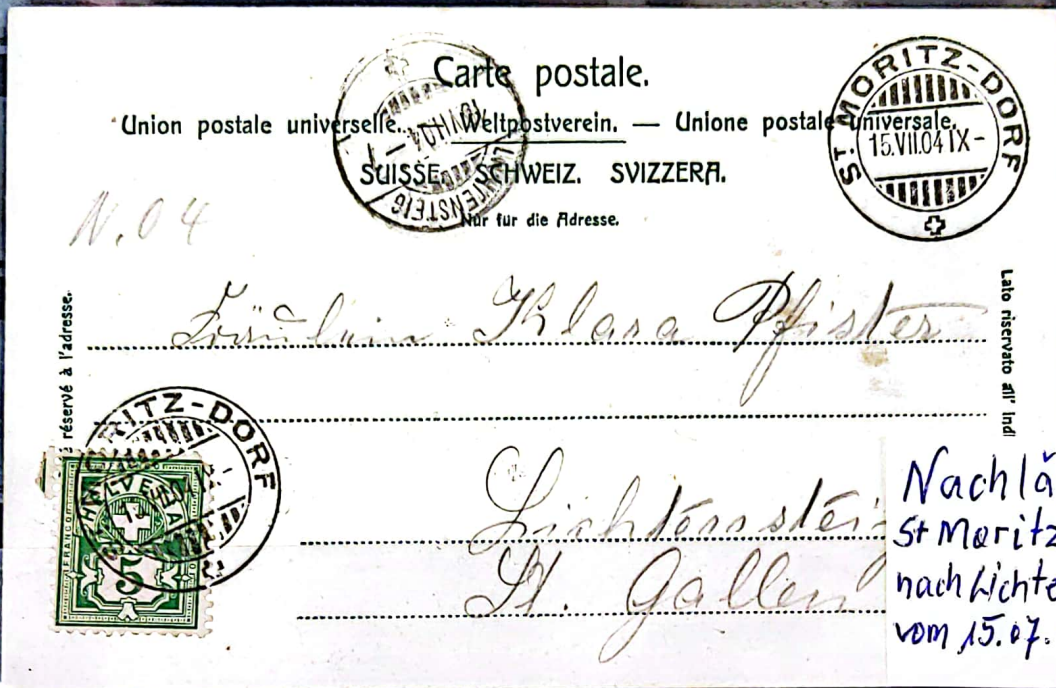 Carte postale.
Union postale universelle. Weltpostverein. — Unione postale universale.
SUISSE. SCHWEIZ. SVIZZERA.
Nur für die Adresse.
LICHTENSTEIG
ST. MORITZ-DORF
15.VII.04 IX-
N. 04
réservé à l'adresse.
Lato riservato all' Indi
Fräulein Klara Pfister
Lichtensteig
St. Gallen
RITZ-DORF
FRANCO
HELVETIA
5
Nachlä
St Moritz
nach Lichte
vom 15.07.